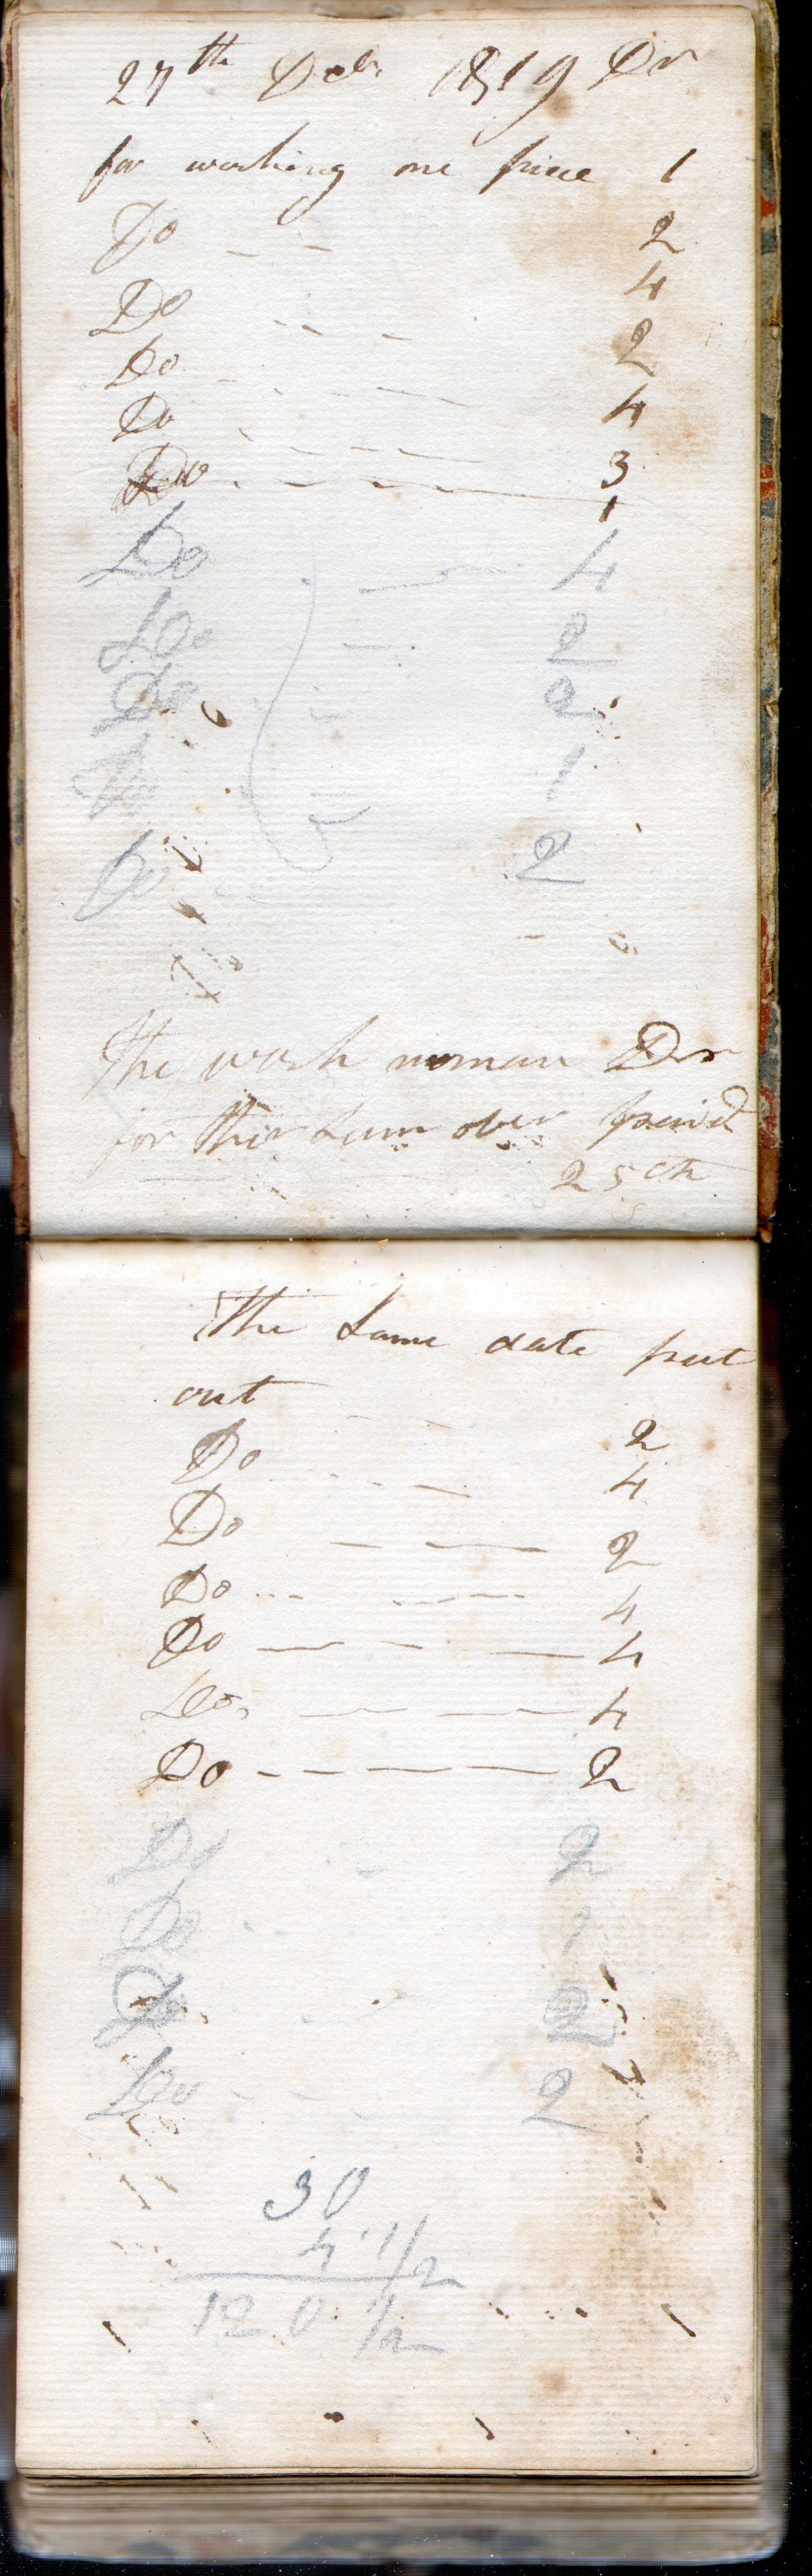 27th Debr 1819 Dr
for washing one piece 1
Do 2
Do 4
Do 2
Do 4
Do 3
1
Do 4
Do 2
Do 2
Do 1
Do 2
The wash woman Dr
for this Sum over paid
25 cts
The Same date put
out
Do 2
4
Do 2
Do 4
Do 4
Do 4
Do 2
Do 2
Do 1
Do 2
Do 2
30
4 1/2
120 1/2